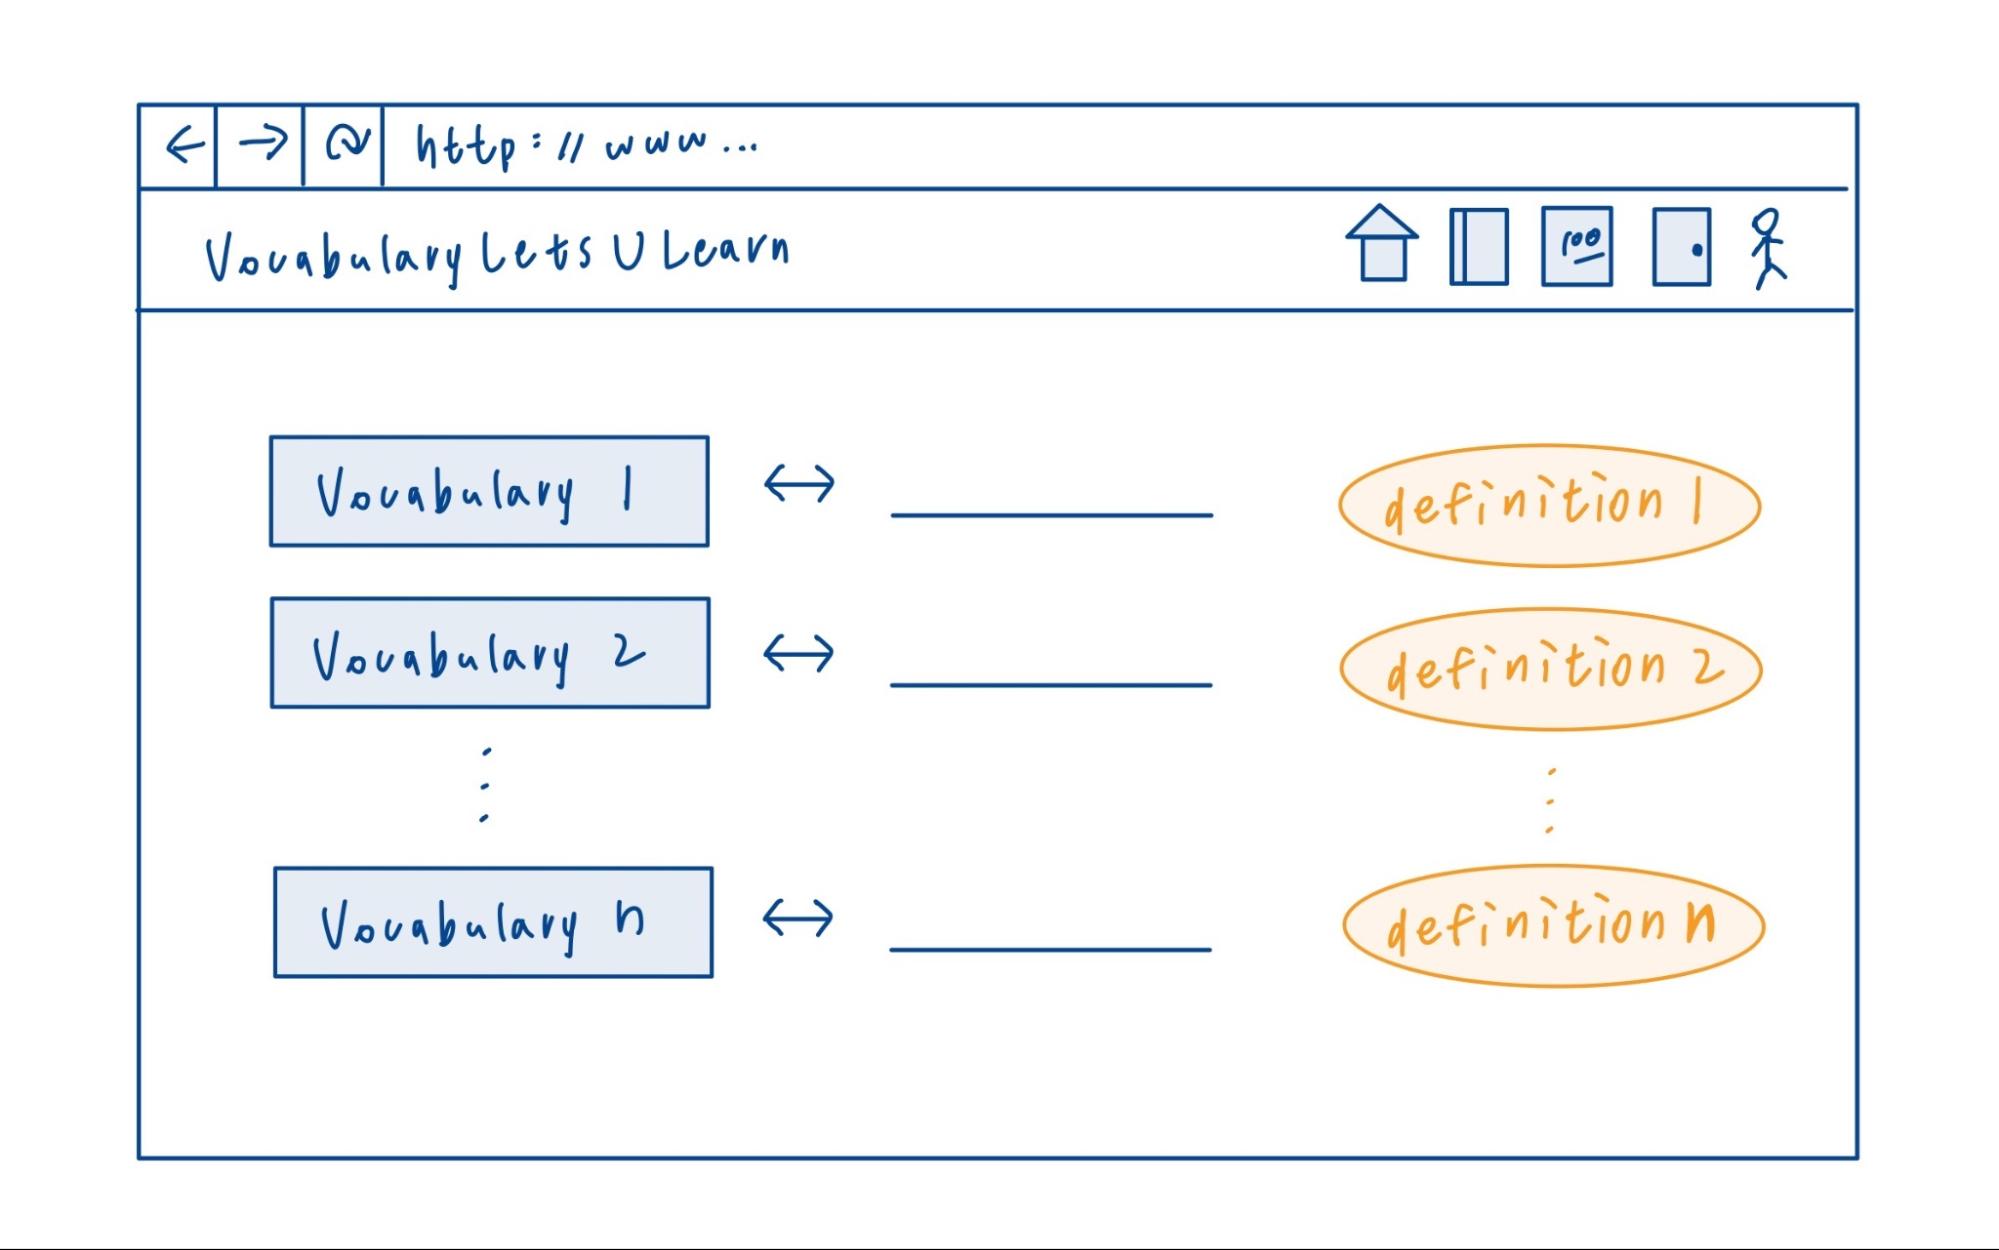 http://www...
Vocabulary Lets U Learn
100
Vocabulary 1
definition 1
Vocabulary 2
definition 2
Vocabulary n
definition n